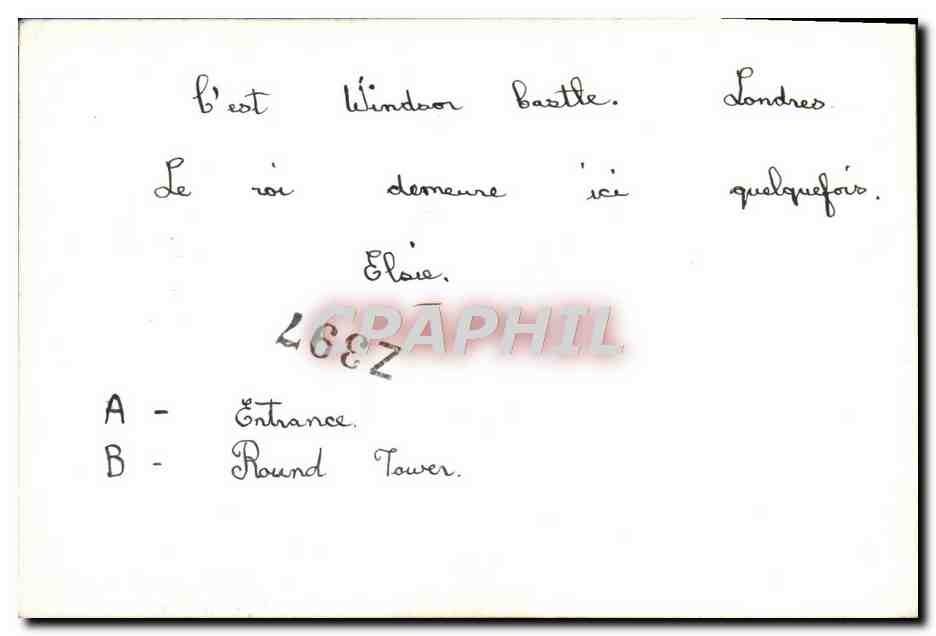 C'est Windsor Castle. Londres
Le roi demeure ici quelquefois.
Elsie.
CPAPHIL
Z397
A - Entrance.
B - Round Tower.